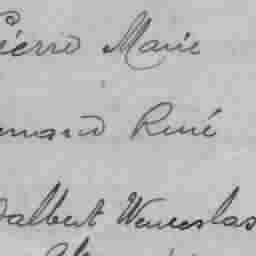 Pierre Marie
René
dalbert Wenceslas